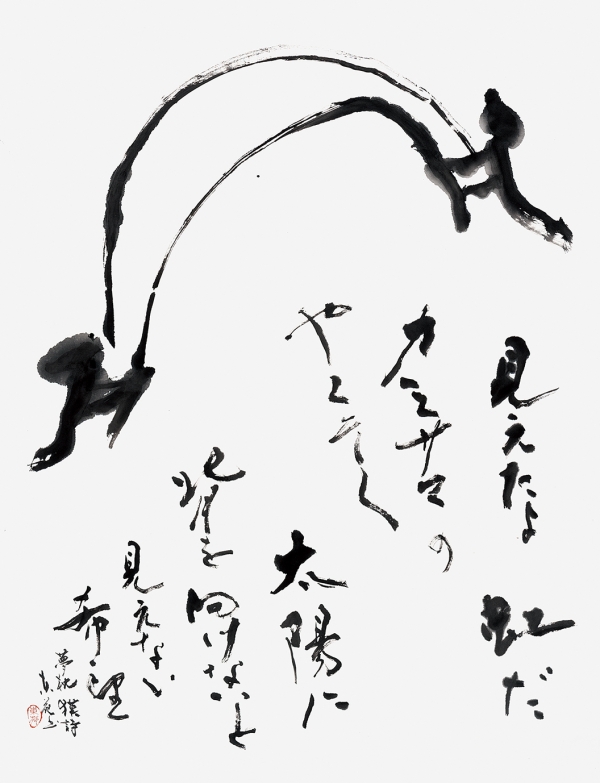 見えたよ 虹だ
カミサマの
やくそく
太陽に
背を向けないと
見えない
希望
夢枕獏詩